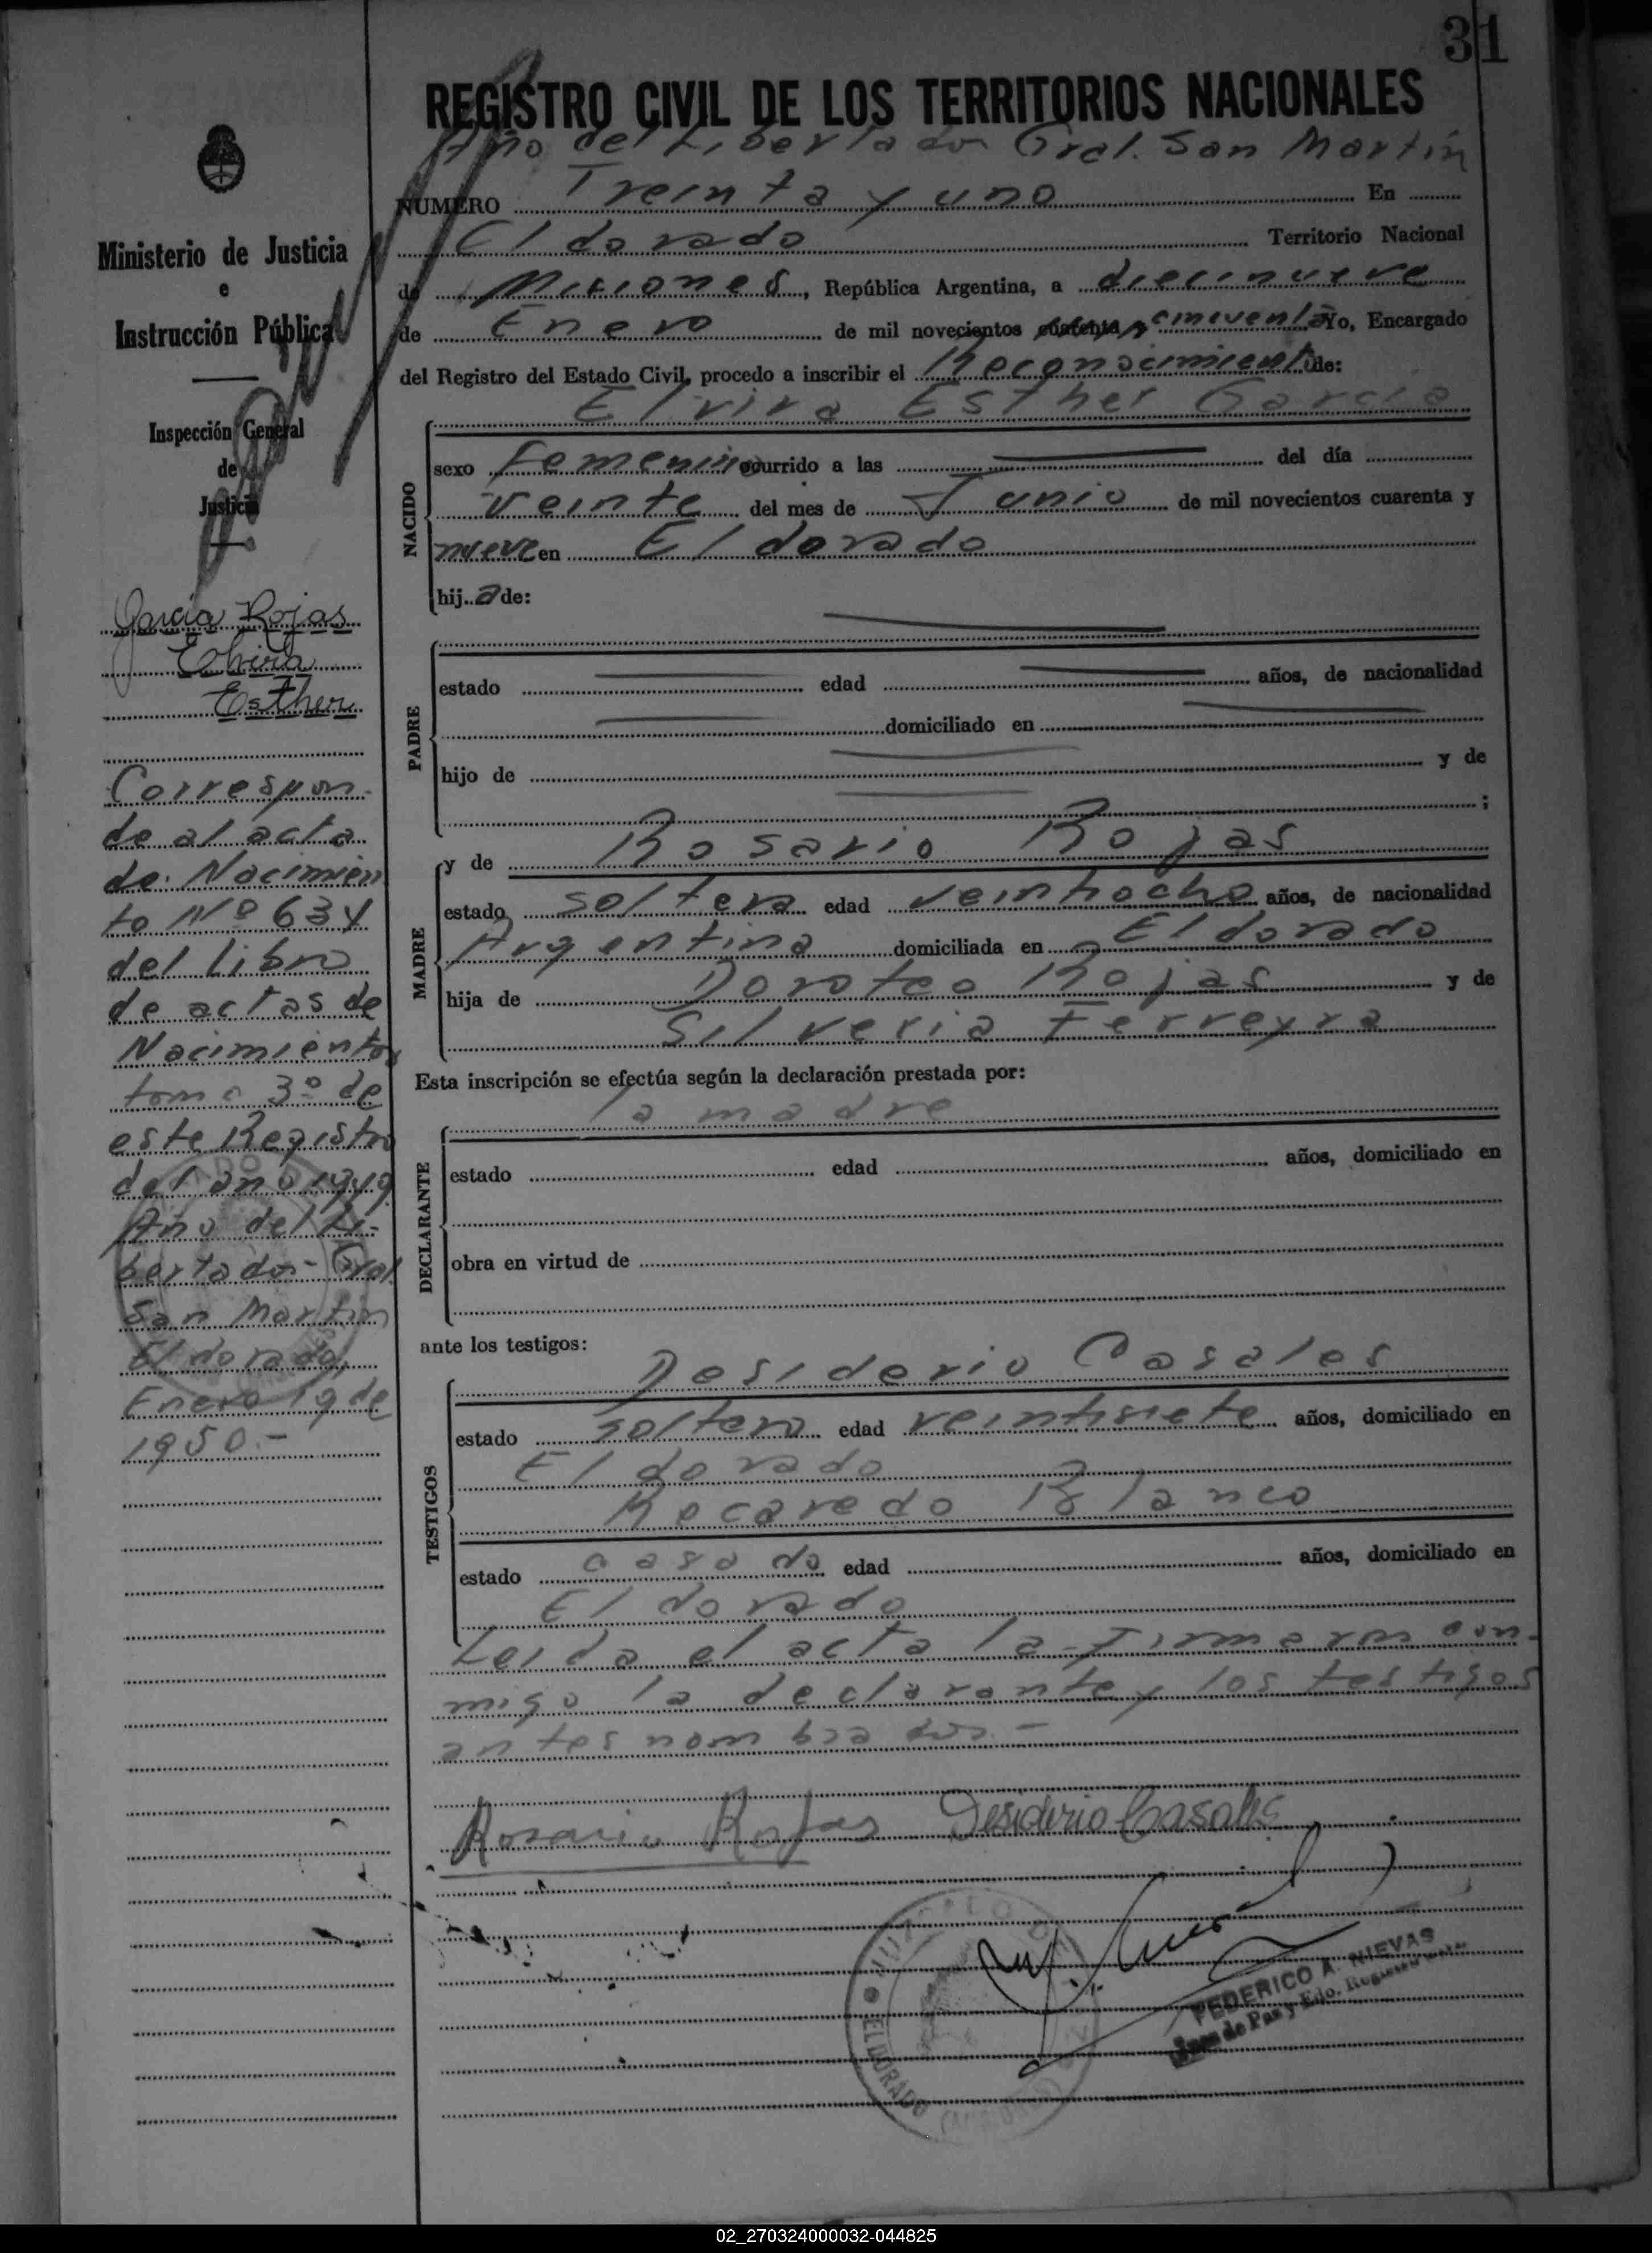 31
REGISTRO CIVIL DE LOS TERRITORIOS NACIONALES
Año del Libertador Gral. San Martín
NUMERO Treinta y uno En
Eldorado Territorio Nacional
de Misiones, República Argentina, a diecinueve
de Enero de mil novecientos cincuenta Yo, Encargado
del Registro del Estado Civil, procedo a inscribir el Reconocimiento de:
Elvira Esther Garcia
NACIDO
sexo Femenino ocurrido a las del día
veinte del mes de Junio de mil novecientos cuarenta y
nueve en Eldorado
hija de:
PADRE
estado edad años, de nacionalidad
domiciliado en
hijo de y de
;
MADRE
y de Rosario Rojas
estado soltera edad veintiocho años, de nacionalidad
Argentina domiciliada en Eldorado
hija de Doroteo Rojas y de
Silveria Ferreyra
Esta inscripción se efectúa según la declaración prestada por:
la madre
DECLARANTE
estado edad años, domiciliado en
obra en virtud de
ante los testigos:
TESTIGOS
Desiderio Casales
estado soltero edad veintisiete años, domiciliado en
Eldorado
Recaredo Blanco
estado casado edad años, domiciliado en
Eldorado
Leida el acta la firmaron con-
migo la declarante y los testigos
antes nombrados.-
Rosario Rojas Desiderio Casales
JUZGADO DE
ELDORADO
FEDERICO A. NIEVAS
Juez de Paz y Edo. Registro
Ministerio de Justicia
e
Instrucción Pública
Inspección General
de
Justicia
Garcia Rojas
Elvira
Esther
Correspon-
de al acta
de Nacimien
to Nº 634
del Libro
de actas de
Nacimientos
tomo 3º de
este Registro
del año 1949
Año del Li-
bertador Gral.
San Martin
Eldorado,
Enero 19 de
1950.-
02_270324000032-044825